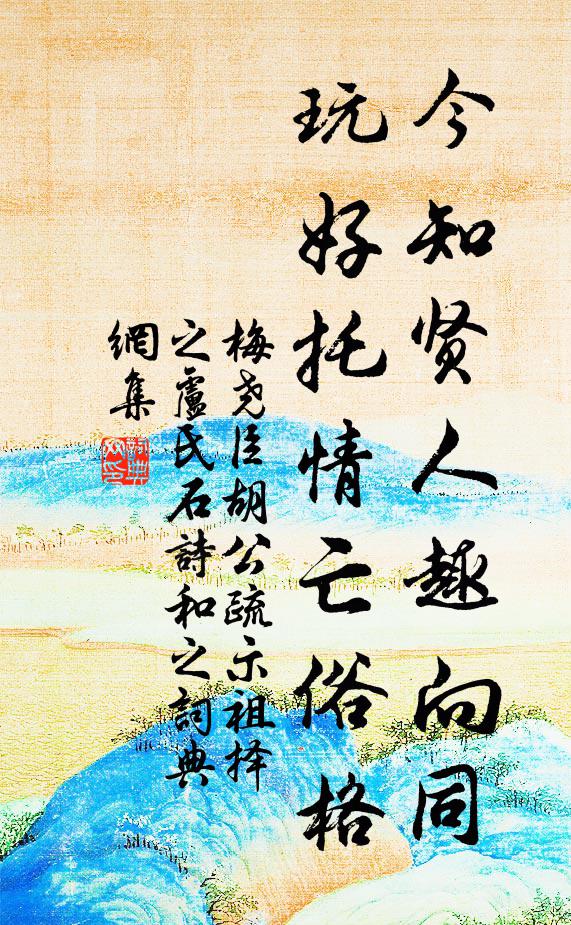 今知贤人趣向同
玩好托情亡俗格
梅尧臣胡公疏示祖择
之盧氏石詩和之詞典
網集